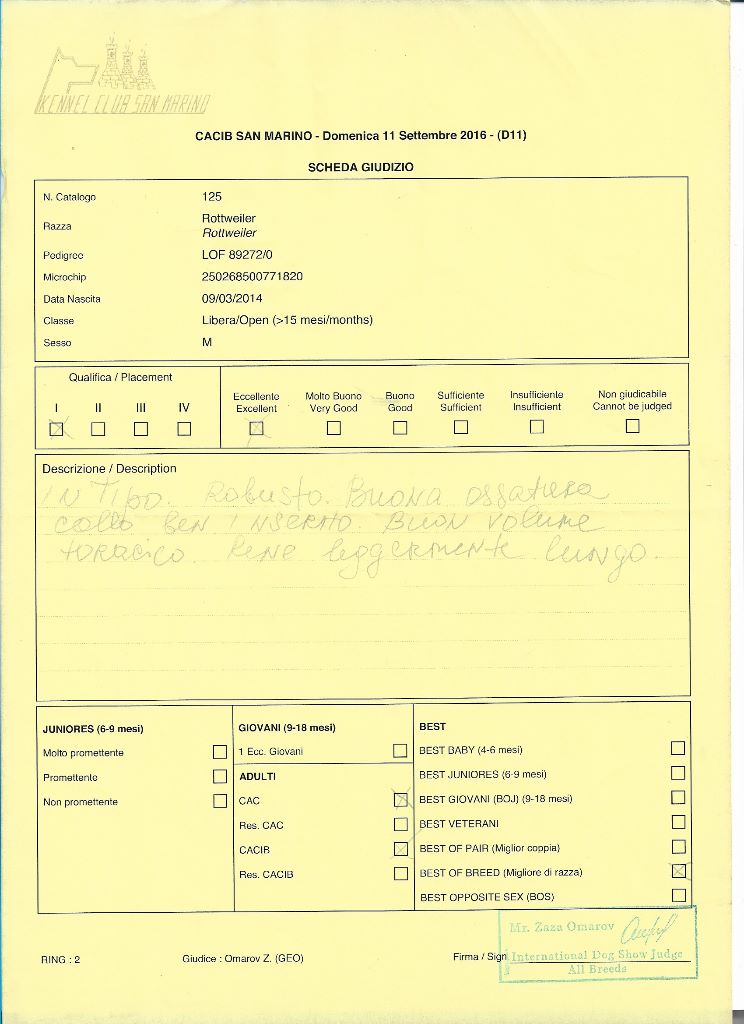 KENNEL CLUB SAN MARINO
CACIB SAN MARINO - Domenica 11 Settembre 2016 - (D11)
SCHEDA GIUDIZIO
N. Catalogo 125
Razza Rottweiler
Rottweiler
Pedigree LOF 89272/0
Microchip 250268500771820
Data Nascita 09/03/2014
Classe Libera/Open (>15 mesi/months)
Sesso M
Qualifica / Placement
I II III IV
Eccellente Molto Buono Buono Sufficiente Insufficiente Non giudicabile
Excellent Very Good Good Sufficient Insufficient Cannot be judged
Descrizione / Description
IN TIPO. Robusto. Buona ossatura
collo ben inserito. Buon volume
toracico. Rene leggermente lungo.
JUNIORES (6-9 mesi)
Molto promettente
Promettente
Non promettente
GIOVANI (9-18 mesi)
1 Ecc. Giovani
ADULTI
CAC
Res. CAC
CACIB
Res. CACIB
BEST
BEST BABY (4-6 mesi)
BEST JUNIORES (6-9 mesi)
BEST GIOVANI (BOJ) (9-18 mesi)
BEST VETERANI
BEST OF PAIR (Miglior coppia)
BEST OF BREED (Migliore di razza)
BEST OPPOSITE SEX (BOS)
RING : 2 Giudice : Omarov Z. (GEO) Firma / Sign
Mr. Zaza Omarov
International Dog Show Judge
All Breeds